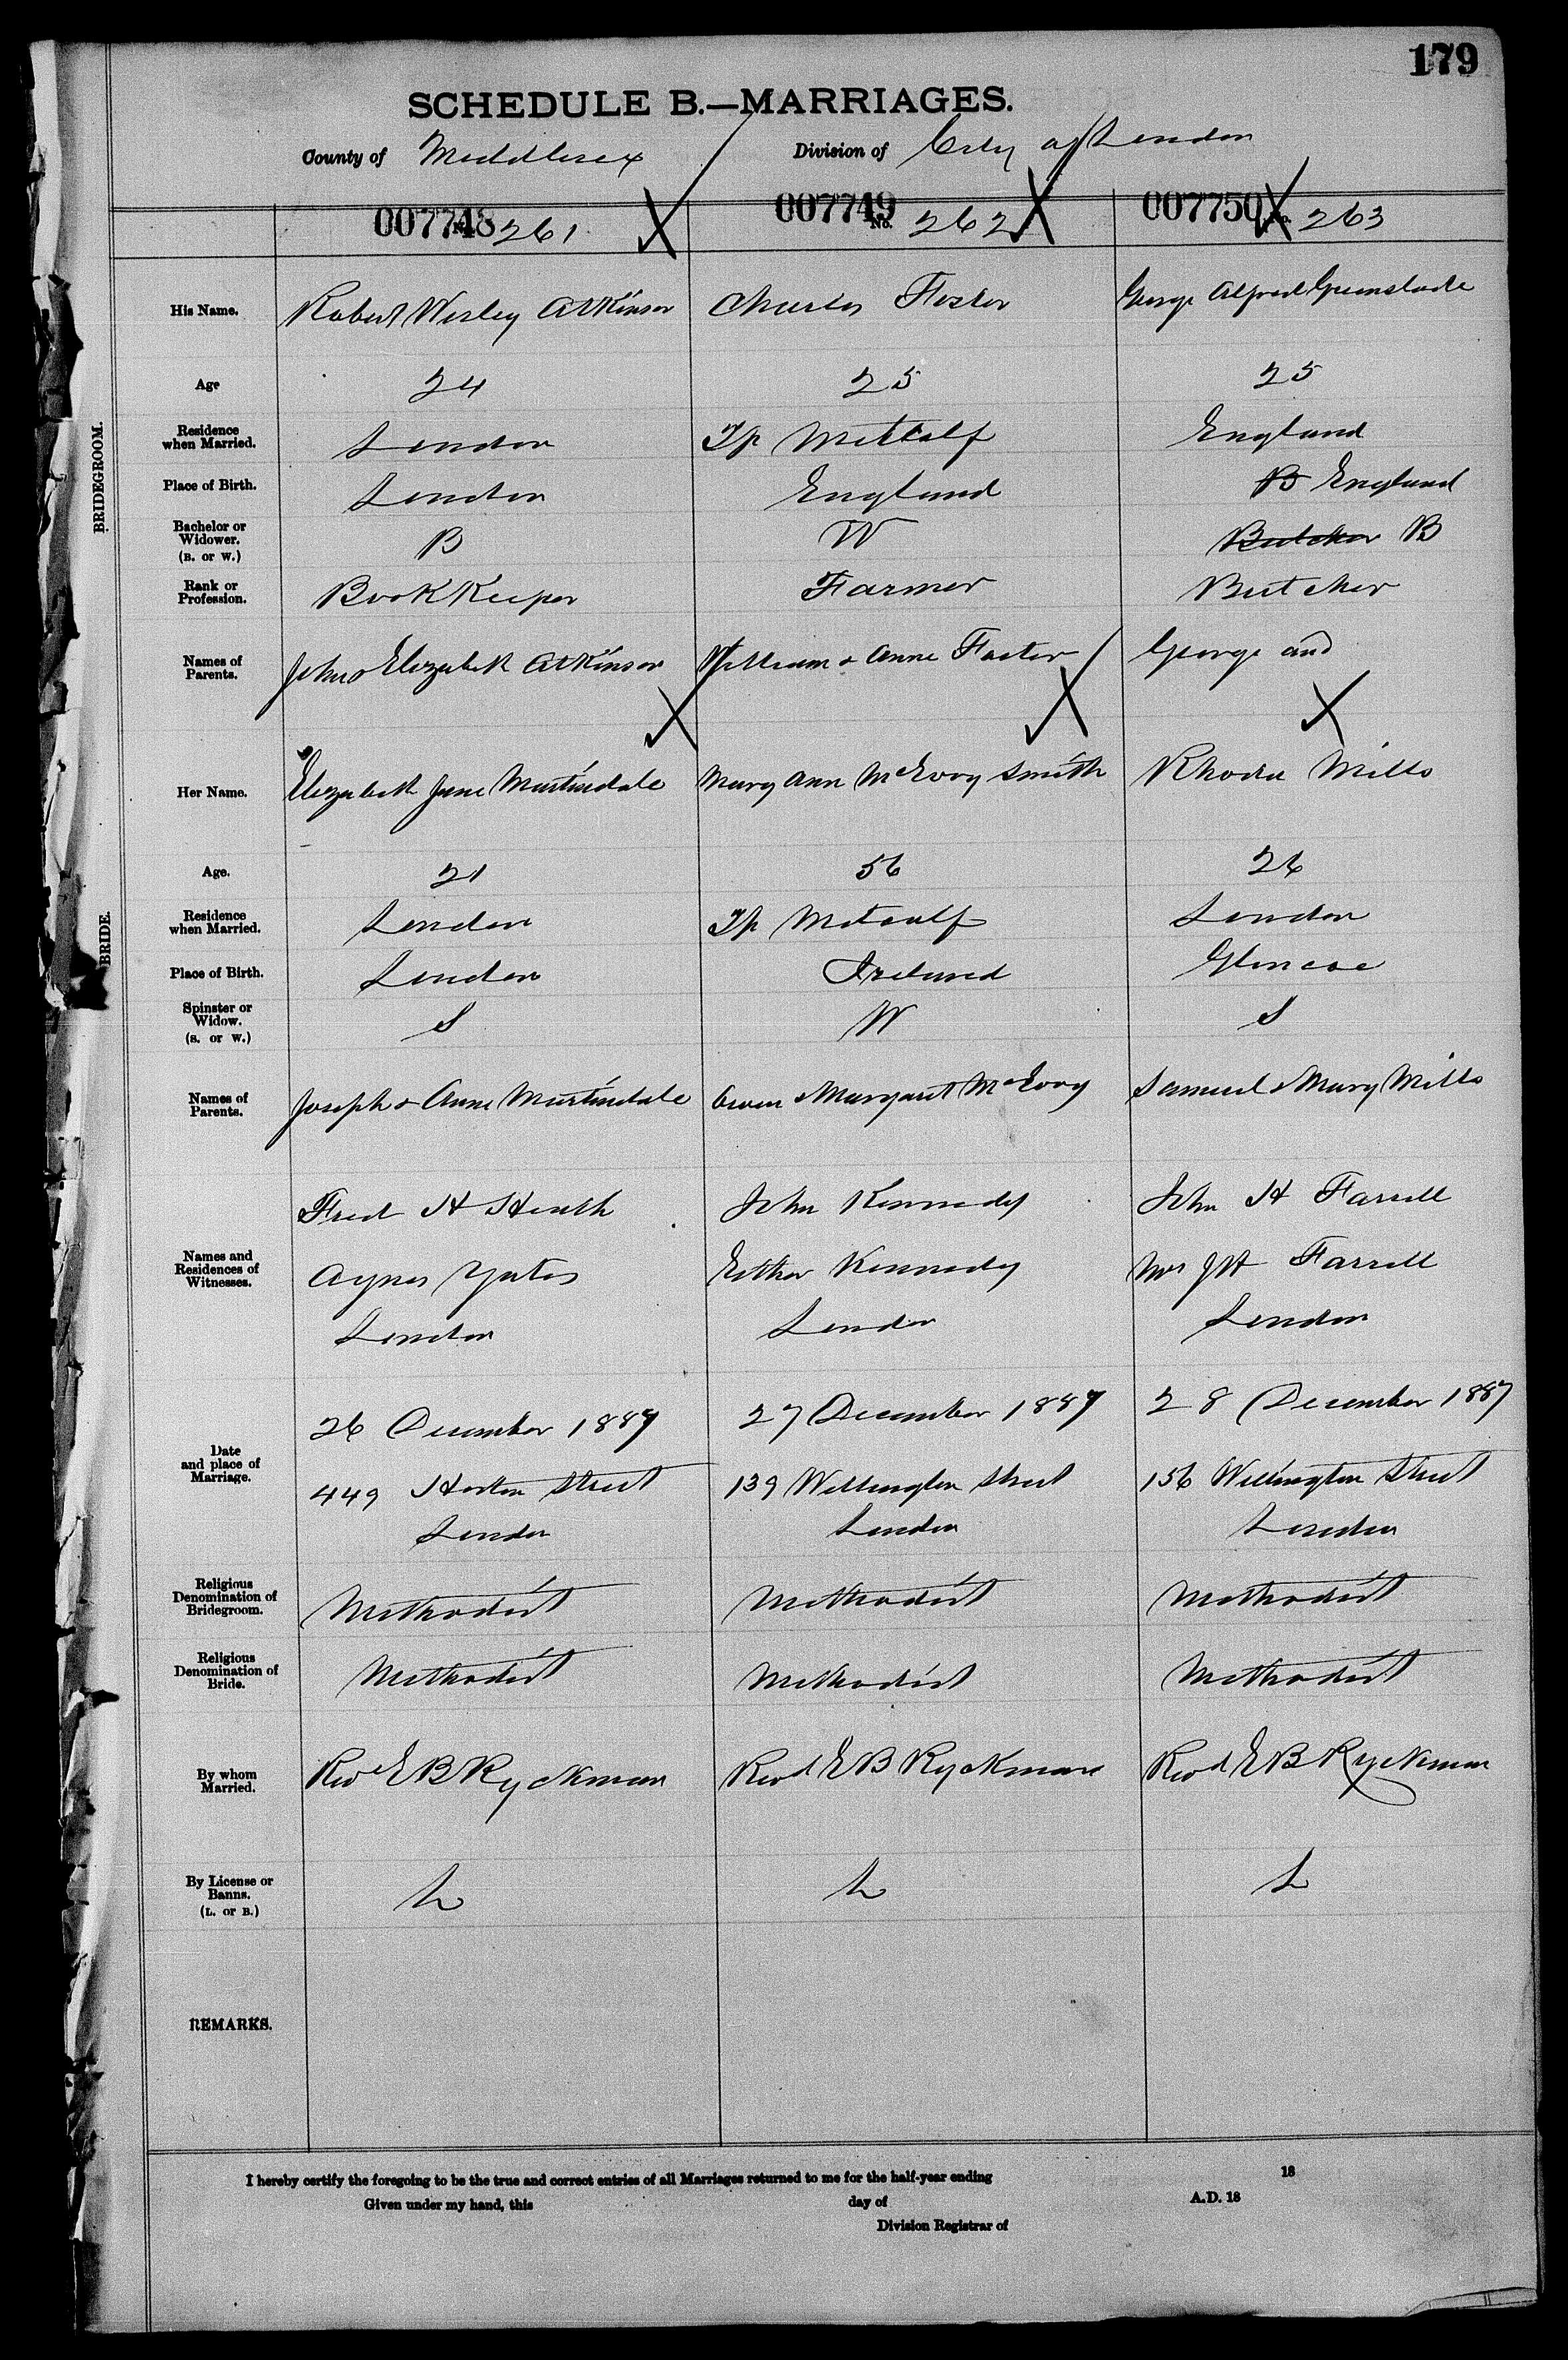 179
SCHEDULE B.—MARRIAGES.
County of Middlesex Division of City of London
007748 No. 261 007749 No. 262 007750 No. 263
BRIDEGROOM.
His Name. Robert Wesley Atkinson Charles Foster George Alfred Greenslade
Age 24 25 25
Residence when Married. London Tp Metcalf England
Place of Birth. London England B England
Bachelor or Widower. (B. or W.) B W Butcher B
Rank or Profession. BookKeeper Farmer Butcher
Names of Parents. John & Elizabeth Atkinson William & Anne Foster George and
BRIDE.
Her Name. Elizabeth Jane Martindale Mary Ann McEvoy Smith Rhoda Mills
Age. 21 56 26
Residence when Married. London Tp Metcalf London
Place of Birth. London Ireland Glencoe
Spinster or Widow. (S. or W.) S W S
Names of Parents. Joseph & Anne Martindale Owen & Margaret McEvoy Samuel & Mary Mills
Names and Residences of Witnesses.
Fred H Heath John Kennedy John H Farrell
Agnes Yates Esther Kennedy Mrs JH Farrell
London London London
Date and place of Marriage.
26 December 1887 27 December 1887 28 December 1887
449 Horton Street 139 Wellington Street 156 Wellington Street
London London London
Religious Denomination of Bridegroom. Methodist Methodist Methodist
Religious Denomination of Bride. Methodist Methodist Methodist
By whom Married. Revd E B Ryckman Revd E B Ryckman Revd E B Ryckman
By License or Banns. (L. or B.) L L L
REMARKS.
I hereby certify the foregoing to be the true and correct entries of all Marriages returned to me for the half-year ending 18
Given under my hand, this day of A.D. 18
Division Registrar of